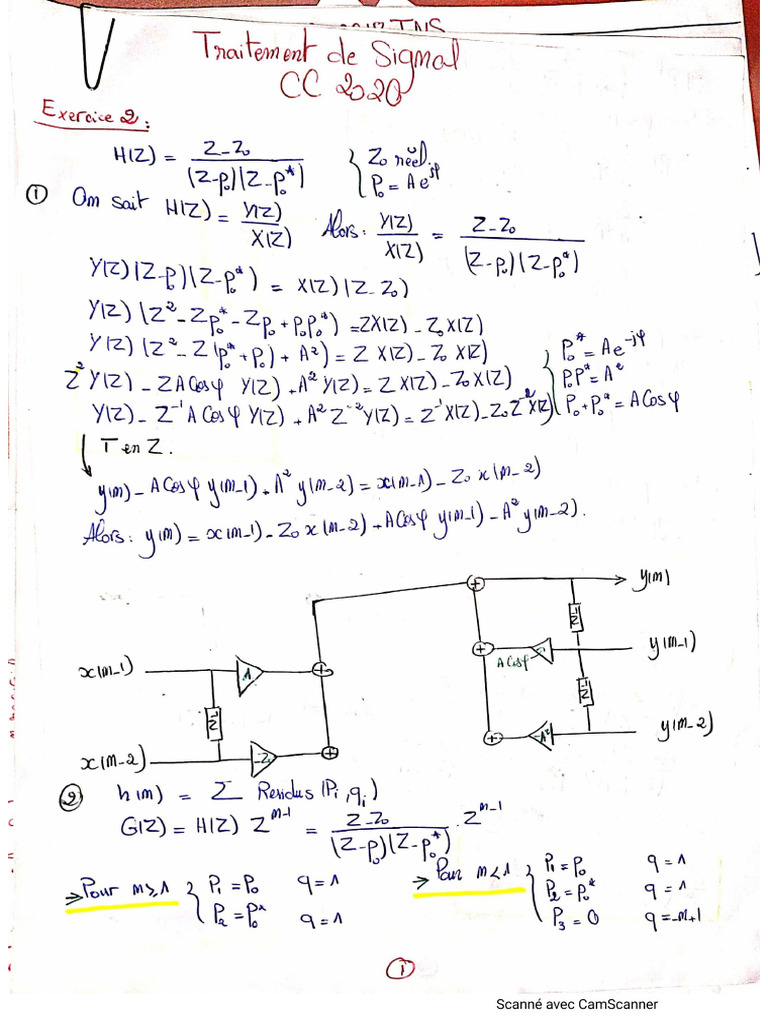 TNS
Traitement de Signal
CC 2020
Exercice 2:
H(Z) = Z-Z₀ / (Z-P₀)(Z-P₀*) { Z₀ réel. P₀ = Ae^jφ
① On sait H(Z) = Y(Z)/X(Z) Alors: Y(Z)/X(Z) = Z-Z₀ / (Z-P₀)(Z-P₀*)
Y(Z)(Z-P₀)(Z-P₀*) = X(Z)(Z-Z₀)
Y(Z)(Z²-ZP₀*-ZP₀+P₀P₀*) = ZX(Z)-Z₀X(Z)
Y(Z)(Z²-Z(P₀*+P₀)+A²) = Z X(Z)-Z₀ X(Z)
Z²Y(Z)-ZACosφ Y(Z)+A²Y(Z) = Z X(Z)-Z₀X(Z)
Y(Z)-Z⁻¹ACosφ Y(Z)+A²Z⁻²Y(Z) = Z⁻¹X(Z)-Z₀Z⁻²X(Z)
{ P₀* = Ae^-jφ
P₀P* = A²
P₀+P₀* = ACosφ
↓ T en Z.
y(n)-ACosφ y(n-1)+A²y(n-2) = x(n-1)-Z₀ x(n-2)
Alors: y(n) = x(n-1)-Z₀ x(n-2)+ACosφ y(n-1)-A²y(n-2).
+ y(n)
Z⁻¹
x(n-1) 1 + + ACosφ y(n-1)
Z⁻¹ Z⁻¹
x(n-2) -Z₀ + + -A² y(n-2)
② h(n) = Σ Residus(Pi, qi)
G(Z) = H(Z) Z^n-1 = Z-Z₀ / (Z-P₀)(Z-P₀*) . Z^n-1
⇒ Pour n≥1 { P₁ = P₀ q = 1
P₂ = P₀* q = 1
⇒ Pour n<1 { P₁ = P₀ q = 1
P₂ = P₀* q = 1
P₃ = 0 q = -n+1
①
Scanné avec CamScanner